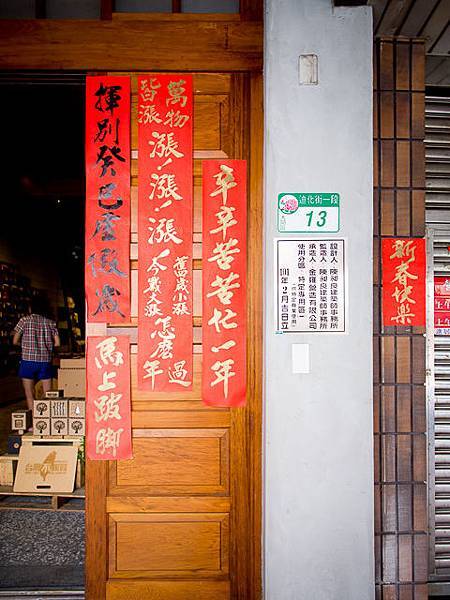 辛辛苦苦忙一年
萬物
皆漲
漲!漲!漲
舊歲小漲
今歲大漲
怎麼
過年
揮別癸巳虛假歲
馬上跛腳
迪化街一段
13
設計人:陳昶良建築師事務所
監造人:陳昶良建築師事務所
承造人:金雍營造有限公司
使用分區:特定專用區
年2月吉日立
新春快樂